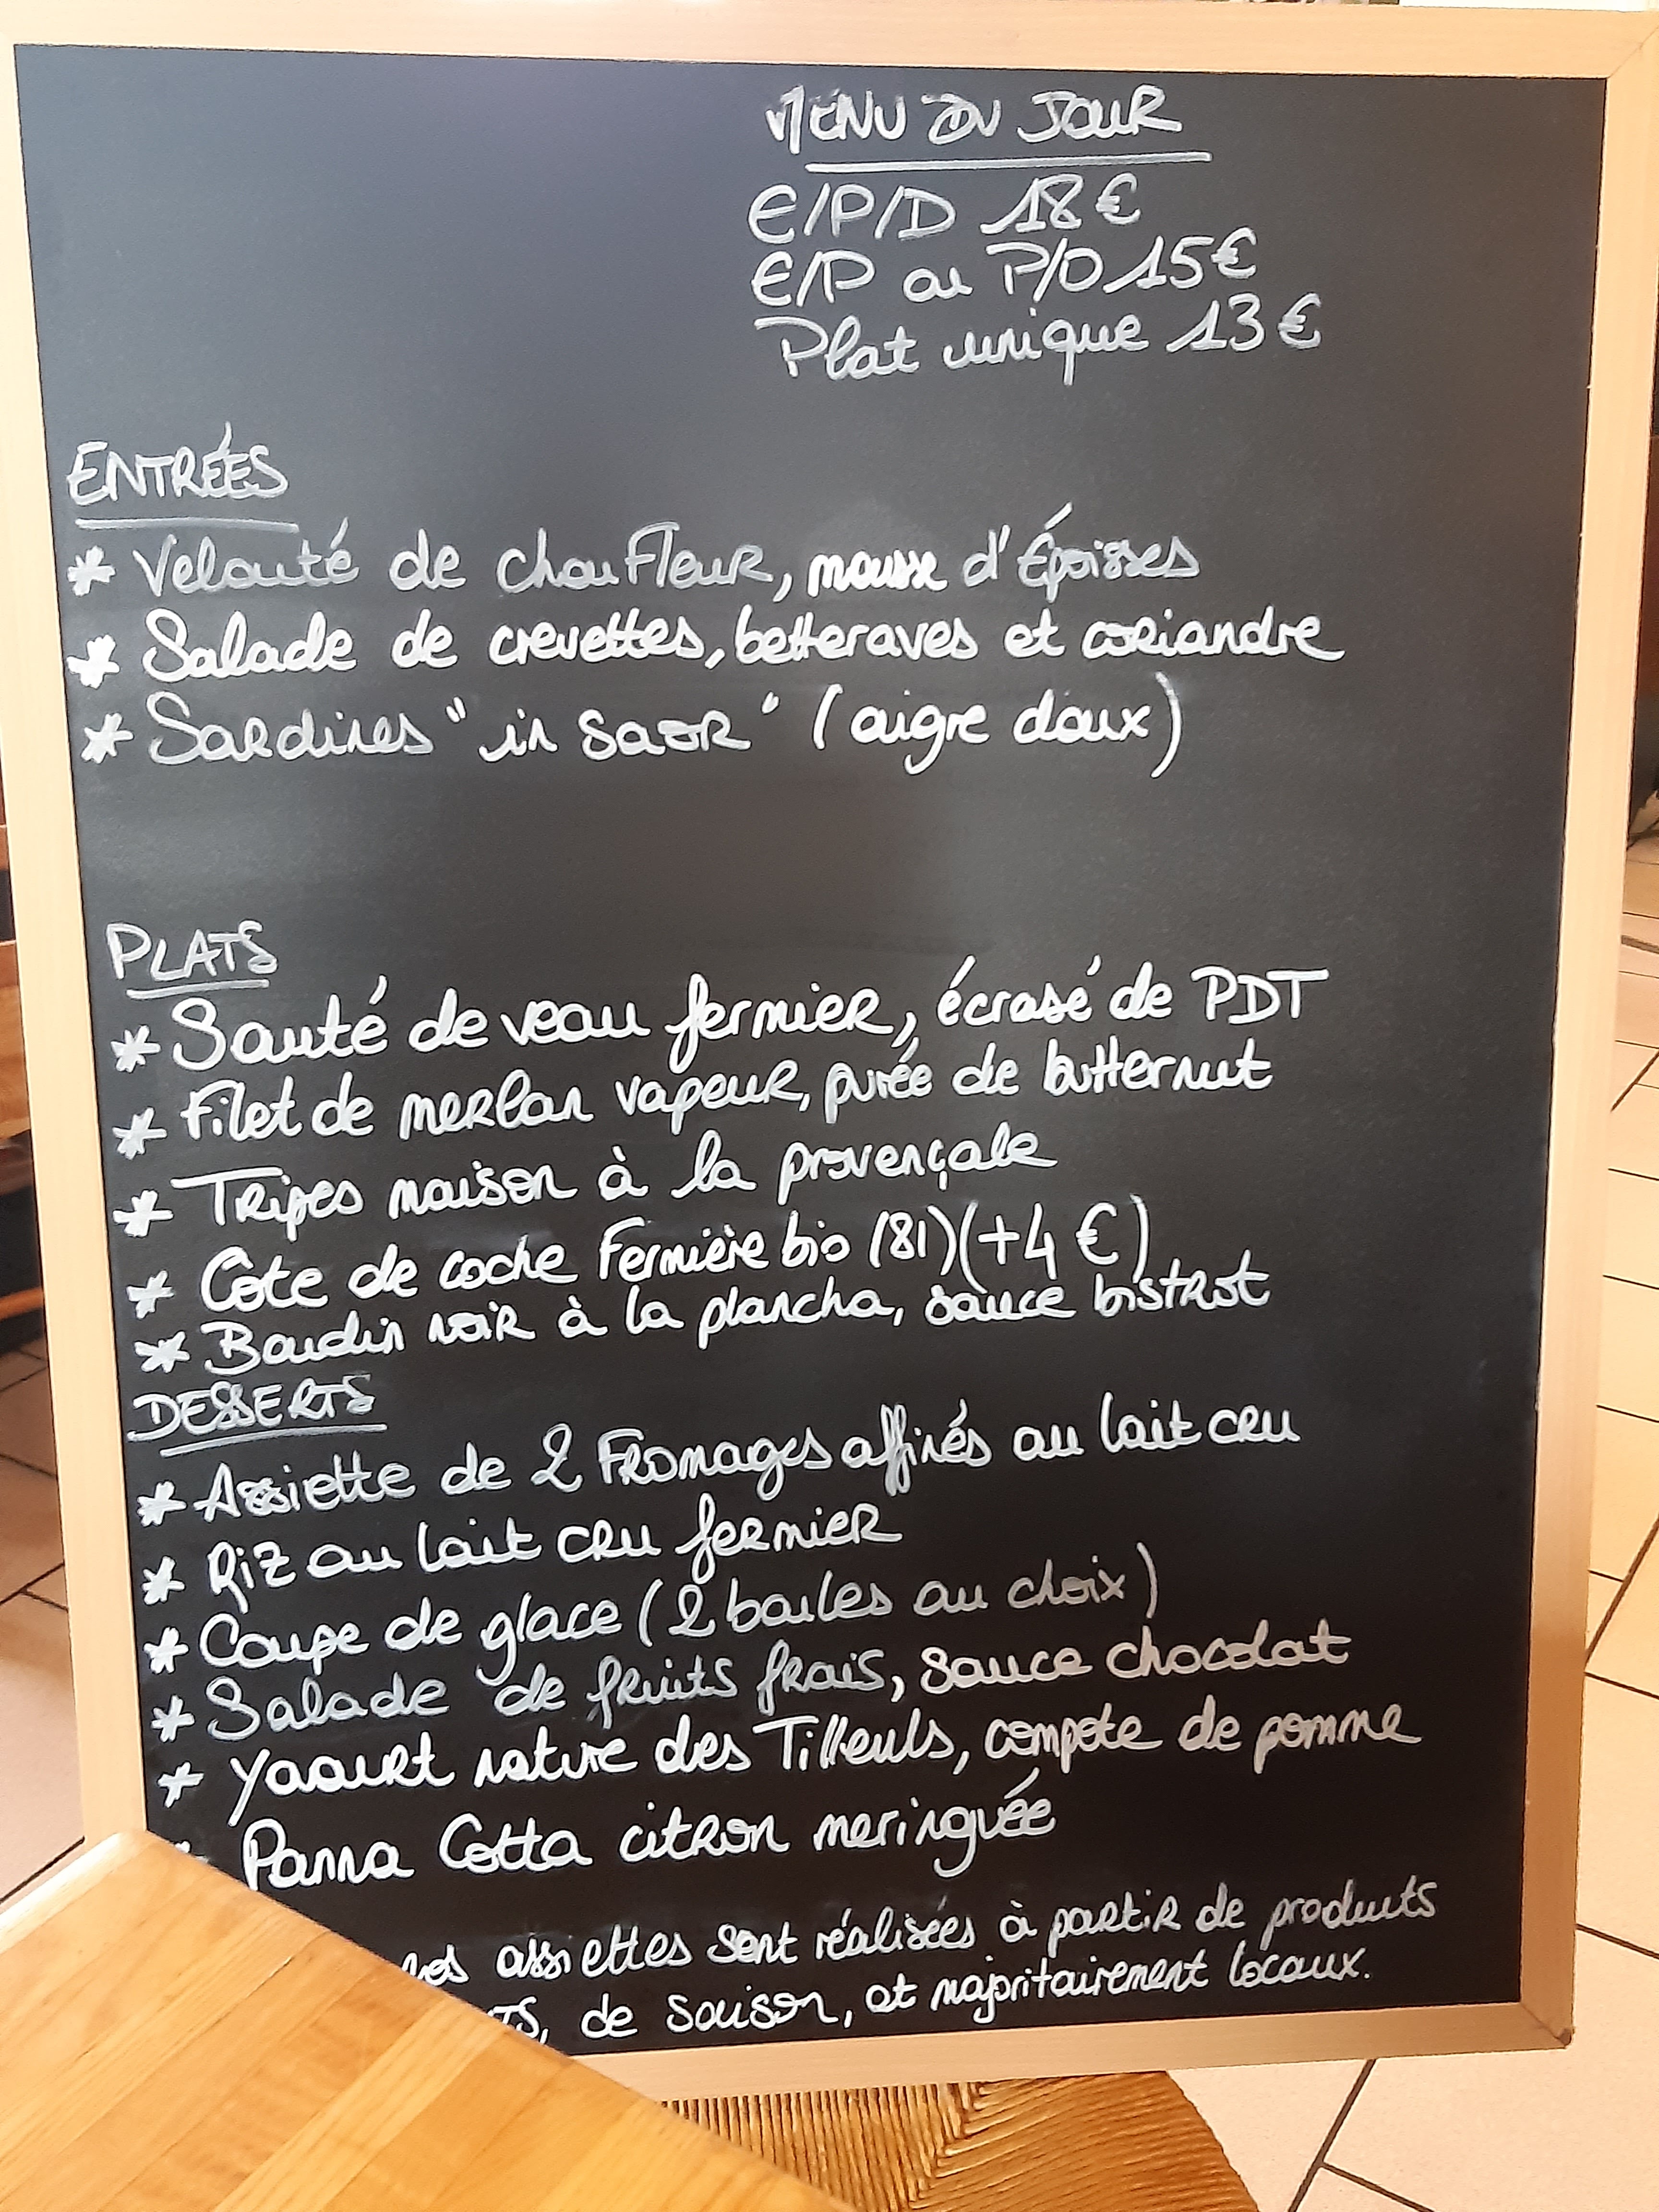 MENU DU JOUR
E/P/D 18€
E/P ou P/D 15€
Plat unique 13€
ENTRÉES
* Velouté de chou Fleur, mousse d'Époisses
* Salade de crevettes, betteraves et coriandre
* Sardines "in saor" (aigre doux)
PLATS
* Sauté de veau fermier, écrasé de PDT
* Filet de merlan vapeur, purée de butternut
* Tripes maison à la provençale
* Côte de coche Fermière bio (81) (+4 €)
* Boudin noir à la plancha, sauce bistrot
DESSERTS
* Assiette de 2 Fromages affinés au lait cru
* Riz au lait cru fermier
* Coupe de glace (2 boules au choix)
* Salade de fruits frais, sauce chocolat
* Yaourt nature des Tilleuls, compote de pomme
Panna Cotta citron meringuée
nos assiettes sont réalisées à partir de produits
TS, de saison, et majoritairement locaux.